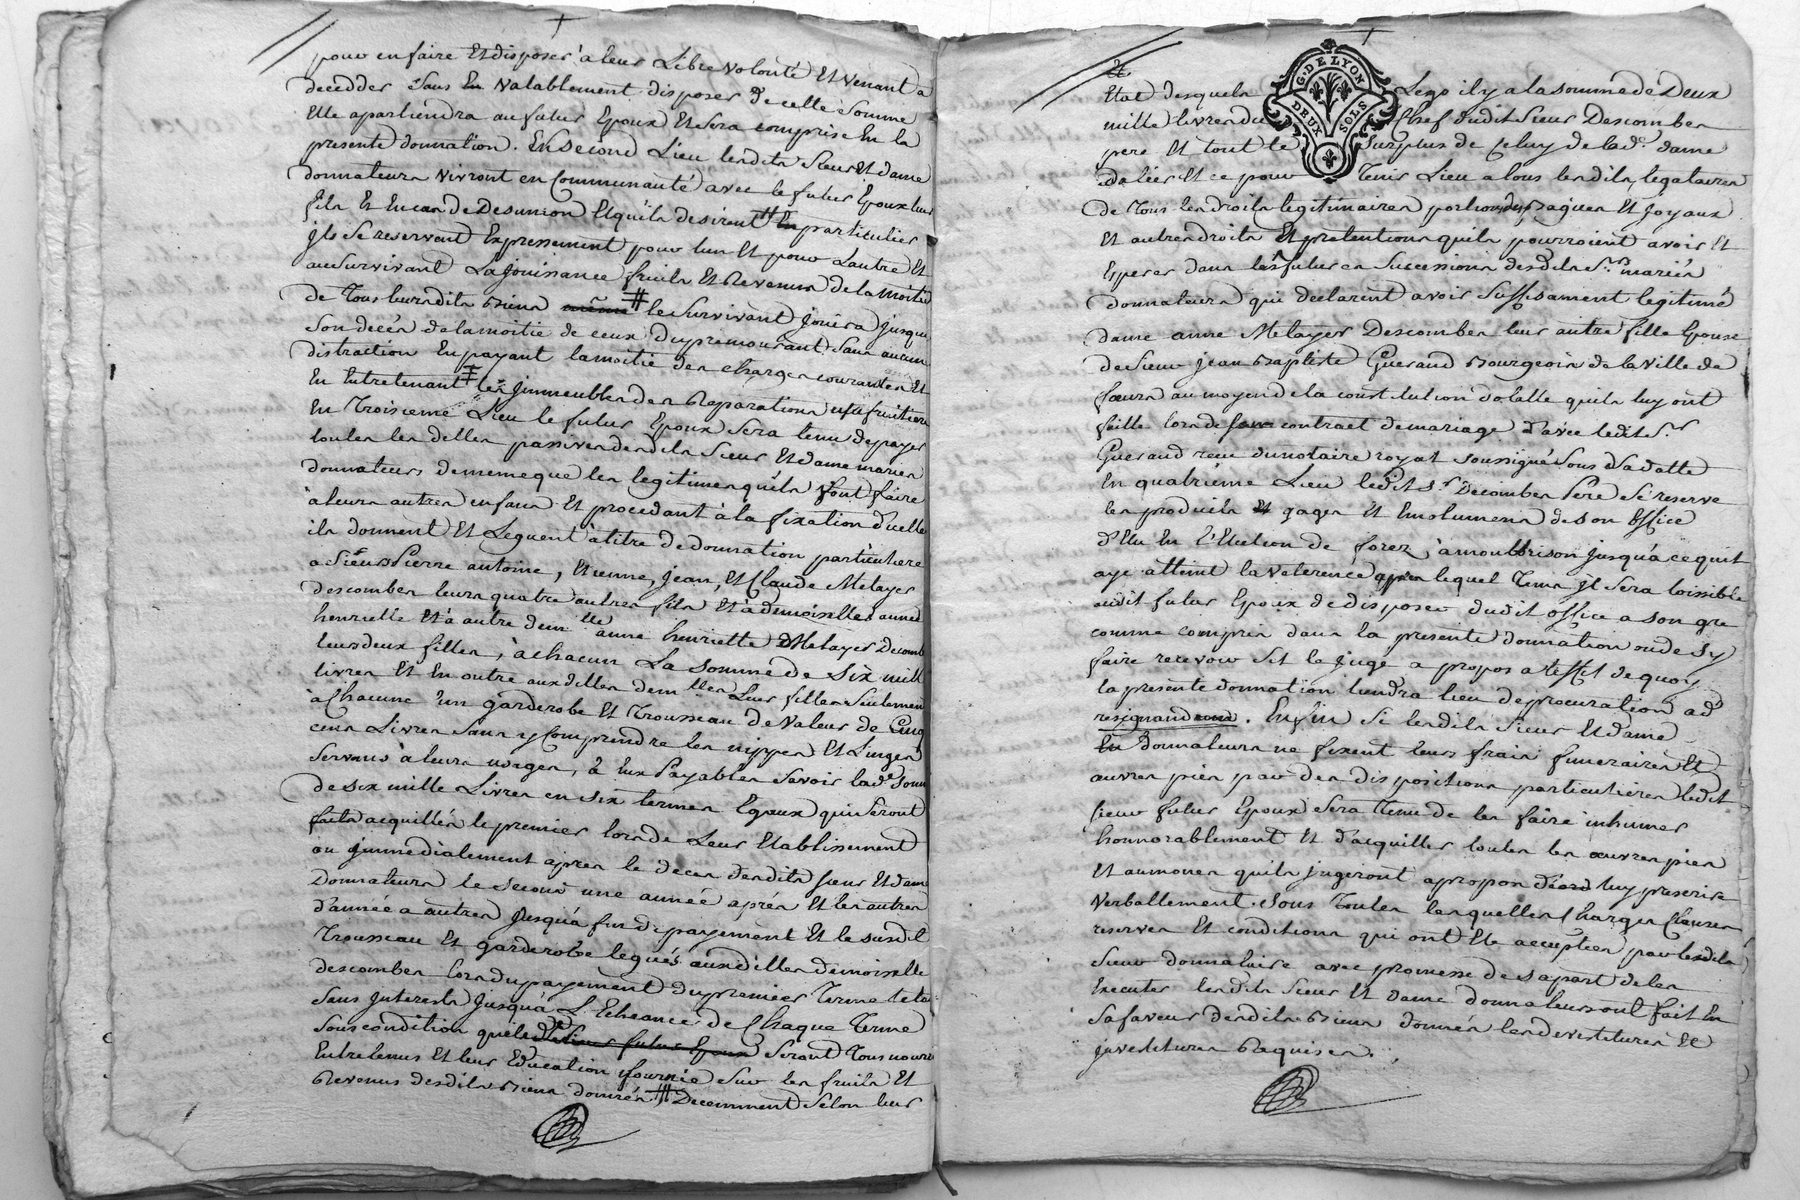 pour en faire Et disposer a leur Libre volonté Et venant a
decedder sans En valablement disposer de celle somme
Elle apartiendra au futur Epoux Et sera comprise En la
presente donnation. En second Lieu lesdits Sieur Et dame
donnateurs vivront en Communauté avec le futur Epoux leur
fils Et En cas de Desunion Et qu'ils desirent En particulier
jls se reservent Expressement pour lun Et pour Lautre Et
au survivant La jouissance fruits Et Revenus de la moitié
de Tous leursdits Biens le survivant jouira jusqua
son decés de la moitié de ceux du premourant sans aucune
distraction En payant la moitié des charges courantes Et
En Entretenant les jmmeubles des Reparations usufruitieres
En Troisieme Lieu le futur Epoux sera tenu de payer
toutes les dettes passives desdits Sieur Et dame mariés
donnateurs de meme que les legitimes qu'ils vont faire
à leurs autres enfans Et procedant à la fixation d'icelles
ils donnent Et Leguent à titre de donnation particuliere
a Sieurs Pierre antoine, Etienne, jean, Et Claude Melayer
descombes leurs quatre autres fils Et à demoiselles anne
henriette Et à autre dem.lle anne henriette Melayer Decombes
leurs deux filles, à chacun La somme de six mille
livres Et En outre auxdittes dem.lles Leurs filles seulement
à Chacune un garderobe Et Trousseau de valeur de Cinq
cens Livres sans y Comprendre les nippes Et Linges
servans à leurs usages, à Eux Payables savoir lad.e somme
de six mille Livres en six termes Egaux qui seront
faits acquittés le premier lors de Leur Etablissement
ou jmmediatement apres le deces desdits sieur Et dame
Donnateurs le second une année aprés Et les autres
d'année a autres jusqu'a fin de payement Et le susdit
Trousseau Et garderobe legués auxdittes demoiselles
descombes lors du payement du premier Terme le tout
sans jnterests jusqu'a L'Echeance de Chaque Terme
sous condition que le dit Sieur futur Epoux seront Tous nourris
Entretenus Et leur Education fournie sur les fruits Et
Revenus desdits Biens donnés Decemment selon leur
Etat desquels Legs il y a la somme de Deux
mille livres du Chef dudit Sieur Descombes
pere Et tout le surplus de Celuy de lad.e dame
Et ce pour Tenir Lieu a tous lesdits legataires
de Tous les droits legitimaires portions Bagues Et joyaux
Et autres droits Et pretentions quils pourroient avoir Et
Esperer dans les futures successions desdits S.rs mariés
donnateurs qui declarent avoir suffisament legitimé
dame anne Melayer Descombes leur autre fille Epouse
de Sieur jean Baptiste Guerand Bourgeois de la ville de
foeurs au moyen de la constitution dotalle quils luy ont
faitte lors de son contract de mariage d'avec ledit S.r
Guerand receu du notaire royal soussigné sous sa datte
En quatriéme Lieu ledit S.r Decombes Pere se reserve
les produits Et gages Et Emolumens de son office
d'Elu En l'Election de forez, à montbrison jusqu'a ce quil
aye atteint la veterence apres lequel Tems jl sera loissible
audit futur Epoux de disposer dudit office a son gre
comme compris dans la presente donnation ou de s'y
faire recevoir s'il le juge a propos a l'effet de quoy
la presente donnation tiendra lieu de procuration ad
resignandum. Enfin si lesdits Sieur Et dame
donnateurs ne fixent leurs frais funeraires Et
œuvres pies par des dispositions particulieres ledit
sieur futur Epoux sera Tenu de les faire inhumer
honnorablement Et d'acquitter toutes les œuvres pies
Et aumones quils jugeront a propos de luy prescrire
verballement. Sous Toutes lesquelles Charges Clauses
reserves Et conditions qui ont Eté acceptées par lesdits
Sieur donnataire avec promesse de sa part de les
Executer lesdits Sieur Et dame donnateurs ont fait En
sa faveur desdits Biens donnés les devestitures Et
jnvestitures Requises.
G. DE LYON
DEUX SOLS